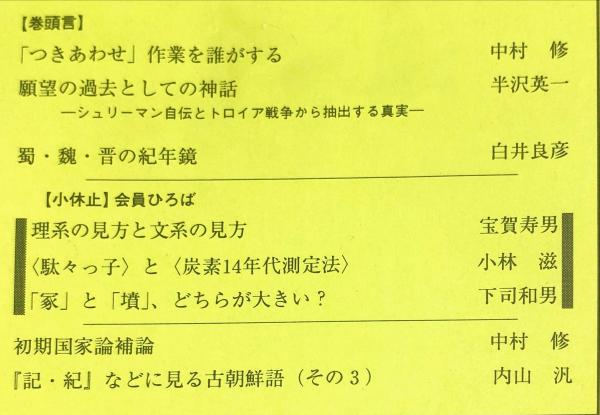 【巻頭言】
「つきあわせ」作業を誰がする 中村 修
願望の過去としての神話 半沢英一
―シュリーマン自伝とトロイア戦争から抽出する真実―
蜀・魏・晋の紀年鏡 白井良彦
【小休止】会員ひろば
理系の見方と文系の見方 宝賀寿男
〈駄々っ子〉と〈炭素14年代測定法〉 小林 滋
「冢」と「墳」、どちらが大きい? 下司和男
初期国家論補論 中村 修
『記・紀』などに見る古朝鮮語(その3) 内山 汎